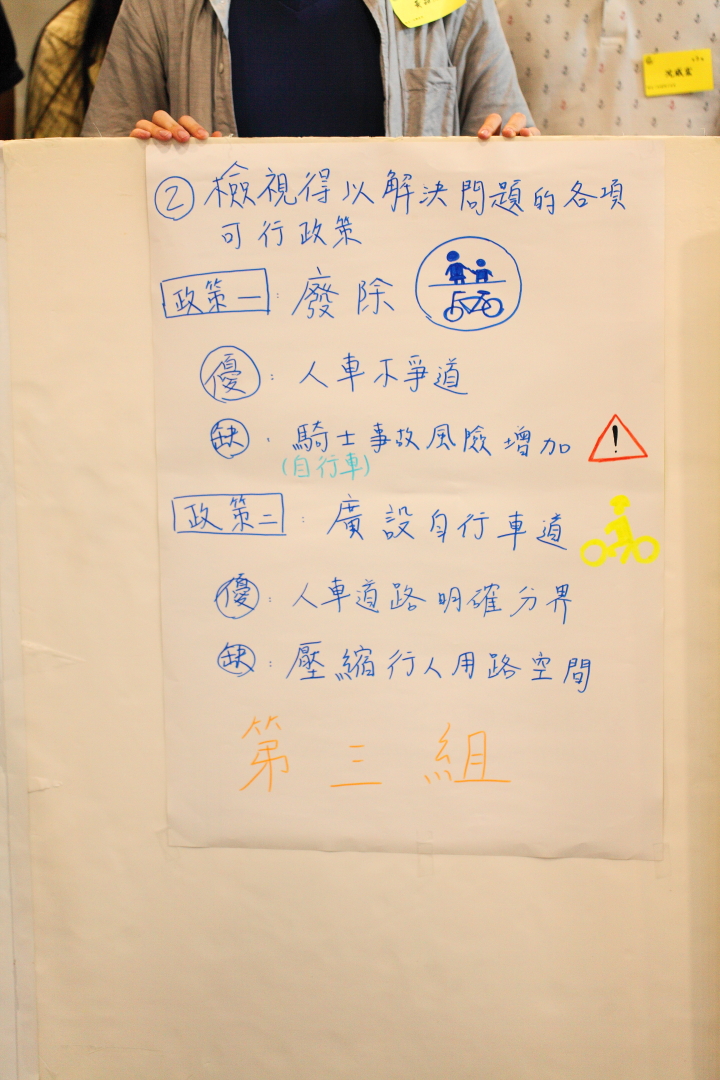 ② 檢視得以解決問題的各項
可行政策
政策一:廢除
優:人車不爭道
缺:騎士事故風險增加 !
(自行車)
政策二:廣設自行車道
優:人車道路明確分界
缺:壓縮行人用路空間
第三組